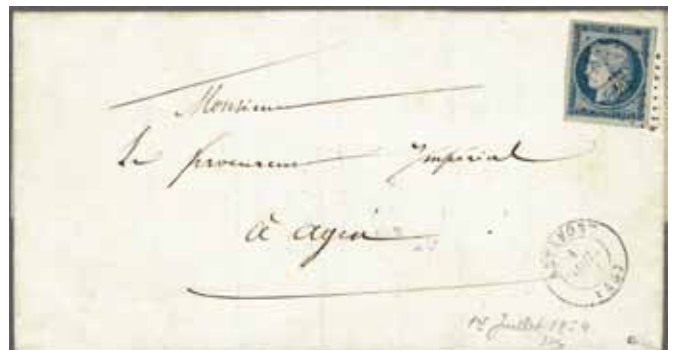 Monsieur
Le procureur Impérial
à agen
Juillet 1854